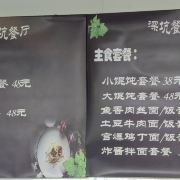 坑餐厅
48元
48元
深坑餐
主食套餐：
小馄饨套餐 38元
大馄饨套餐 48元
鱼香肉丝面/饭套
土豆牛肉面/饭套
宫爆鸡丁面/饭套
炸酱拌面套餐